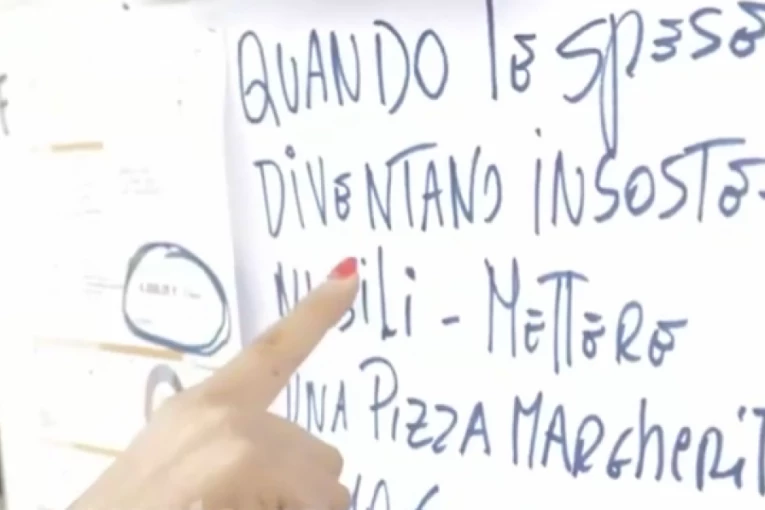 QUANDO le SPESE
DIVENTANO INSOSTE-
NIBILI - METTERE
UNA PIZZA MARGHERIT